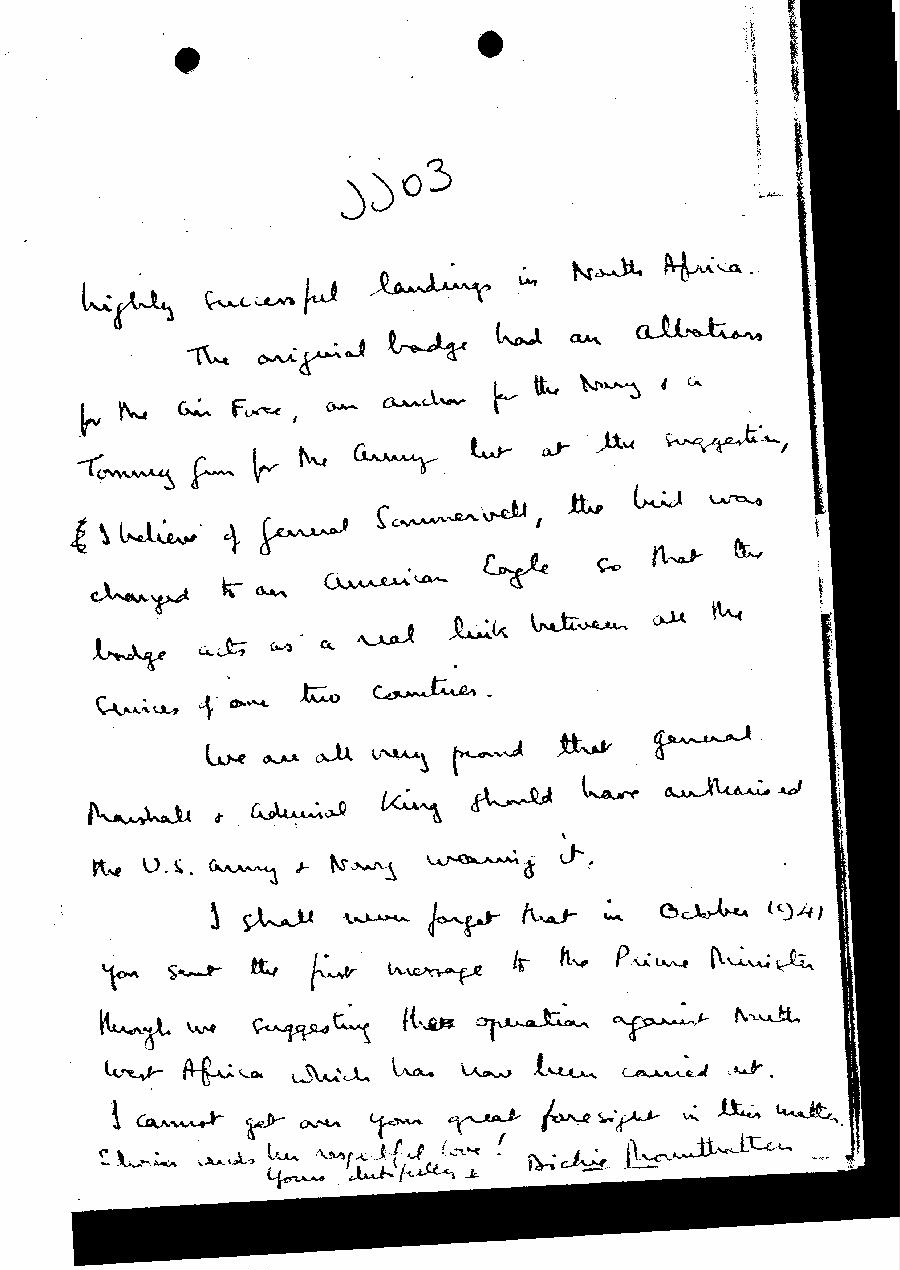 JJ03
highly successful landings in North Africa.
The original badge had an albatross
for the Air Force, an anchor for the Navy & a
Tommy gun for the Army but at the suggestion,
I believe of General Sommervell, the bird was
changed to an American Eagle so that the
badge acts as a real link between all the
Services of our two countries.
We are all very proud that General
Marshall & Admiral King should have authorised
the U.S. Army & Navy wearing it.
I shall never forget that in October 1941
you sent the first message to the Prime Minister
through me suggesting the operation against North
West Africa which has now been carried out.
I cannot get over your great foresight in this matter.
Edwina sends her respectful love!
Yours dutifully &
Dickie Mountbatten